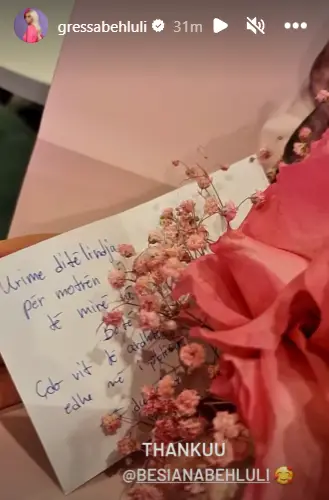 gressabehluli 31m
Urime ditëlindja
për motrën
të mirë
Çdo vit të
edhe më
THANKUU
@BESIANABEHLULI